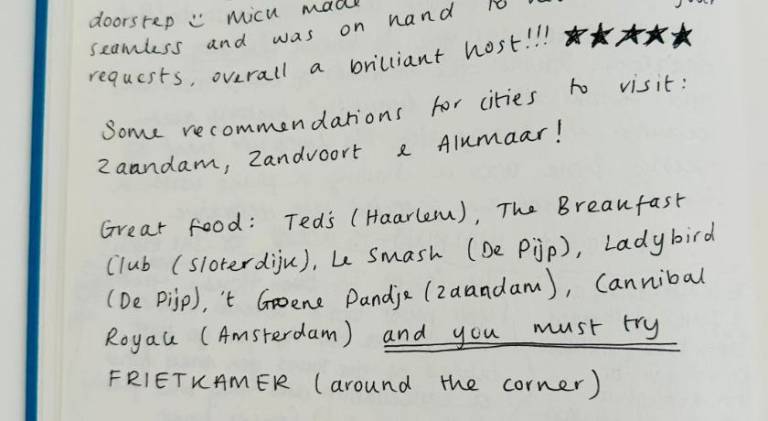 doorstep ☺ Mick made
seamless and was on hand to
requests, overall a brilliant host!!! ★★★★★
Some recommendations for cities to visit:
Zaandam, Zandvoort & Alkmaar!
Great food: Ted's (Haarlem), The Breakfast
Club (Sloterdijk), Le Smash (De Pijp), Ladybird
(De Pijp), 't Groene Pandje (Zaandam), Cannibal
Royale (Amsterdam) and you must try
FRIETKAMER (around the corner)